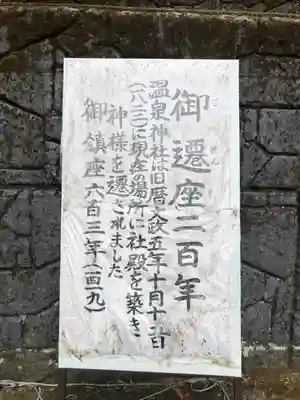 御遷座二百年
ご せん
温泉神社は旧暦文政五年十月十二日
(一八二二)に現在の場所に社殿を築き
神様を遷されました
御鎮座六百三年(一四一九)